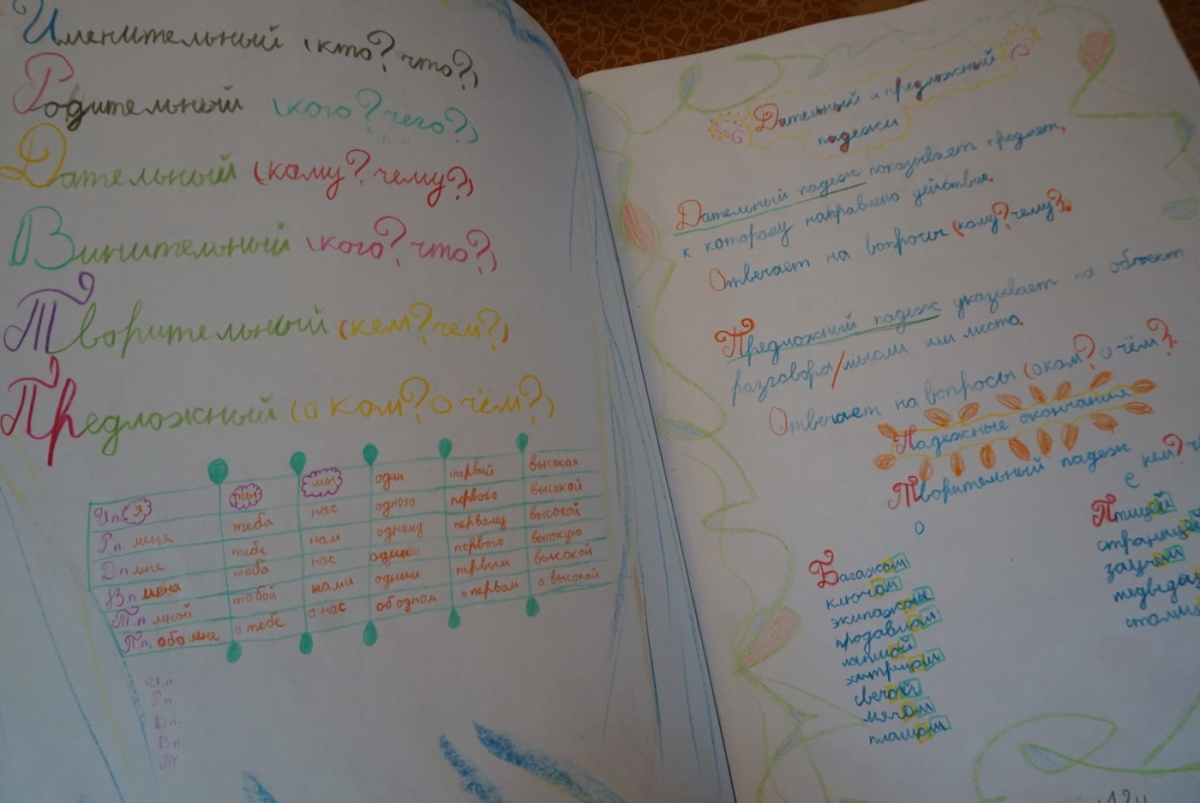 Именительный (кто? что?)
Родительный (кого? чего?)
Дательный (кому? чему?)
Винительный (кого? что?)
Творительный (кем? чем?)
Предложный (о ком? о чём?)
И.п. я ты мы один первый высокая
Р.п меня тебя нас одного первого высокой
Д.п мне тебе нам одному первому высокой
В.п меня тебя нас одного первого высокую
Т.п мной тобой нами одним первым высокой
П.п. обо мне о тебе о нас об одном о первом о высокой
И.п.
Р.п.
Д.п.
В.п.
Дательный и предложный
падежи
Дательный падеж показывает предмет,
к которому направлено действие.
Отвечает на вопросы (кому? чему?).
Предложный падеж указывает на объект
разговора/мысли или места.
Отвечает на вопросы (о ком? о чём?).
Падежные окончания
Творительный падеж кем?
о е
Багажом Птицей
ключом страницей
экипажом
продавцом
хитрецом
свечой
мячом
плащом